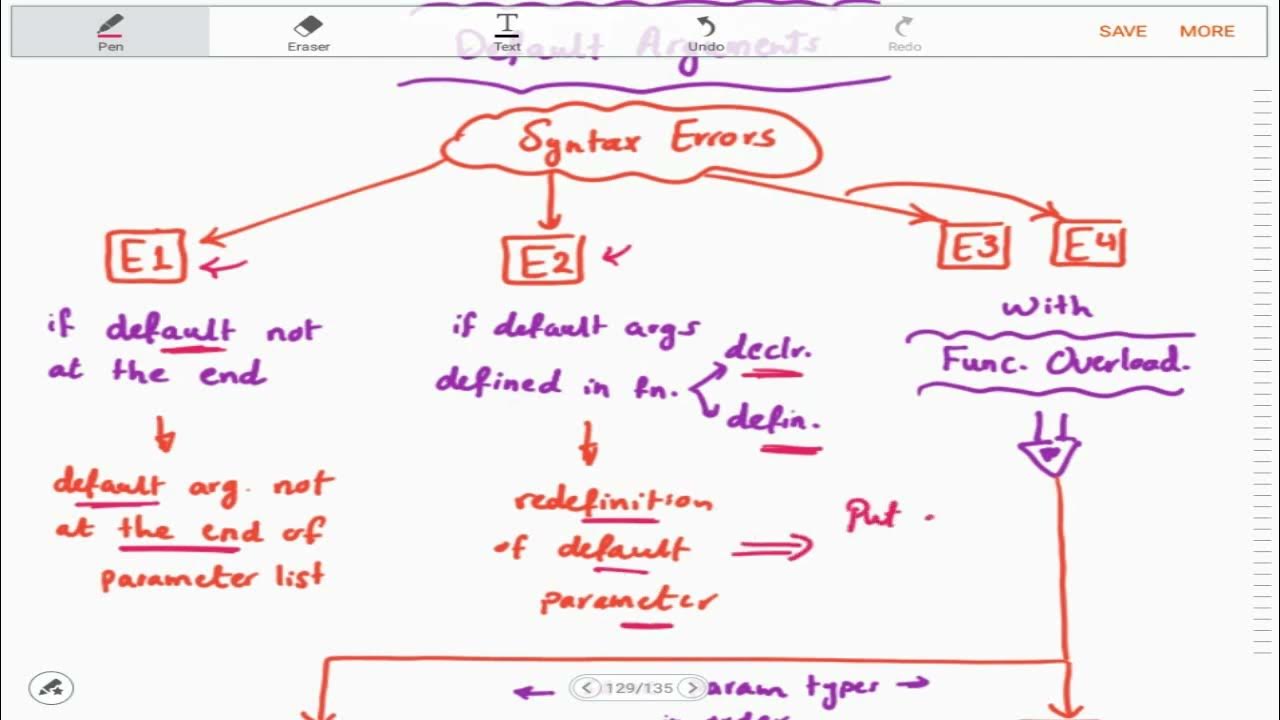 Pen
Eraser
Text
Undo
Redo
SAVE
MORE
Default Arguments
Syntax Errors
E1
E2
E3
E4
if default not
at the end
default arg. not
at the end of
parameter list
if default args
defined in fn.
declr.
defin.
redefinition
of default
parameter
Put
with
Func. Overload.
129/135
param types
in order